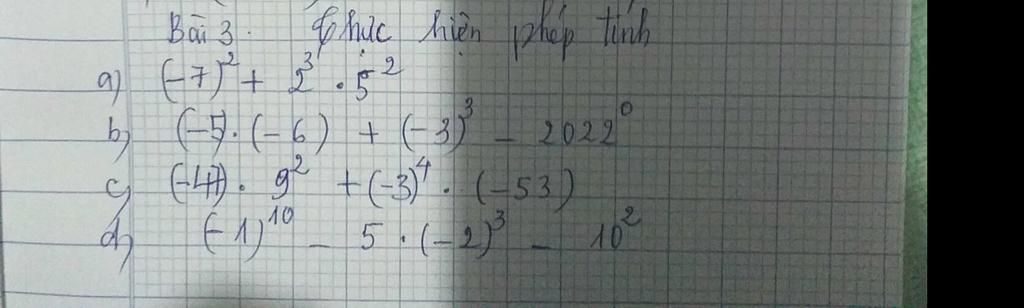 Bài 3. Thực hiện phép tính
a) (-7)² + 2³ . 5²
b) (-5) . (-6) + (-3)³ - 2022⁰
c) (-47) . 9² + (-3)⁴ . (-53)
d) (-1)¹⁰ - 5 . (-2)³ - 10²